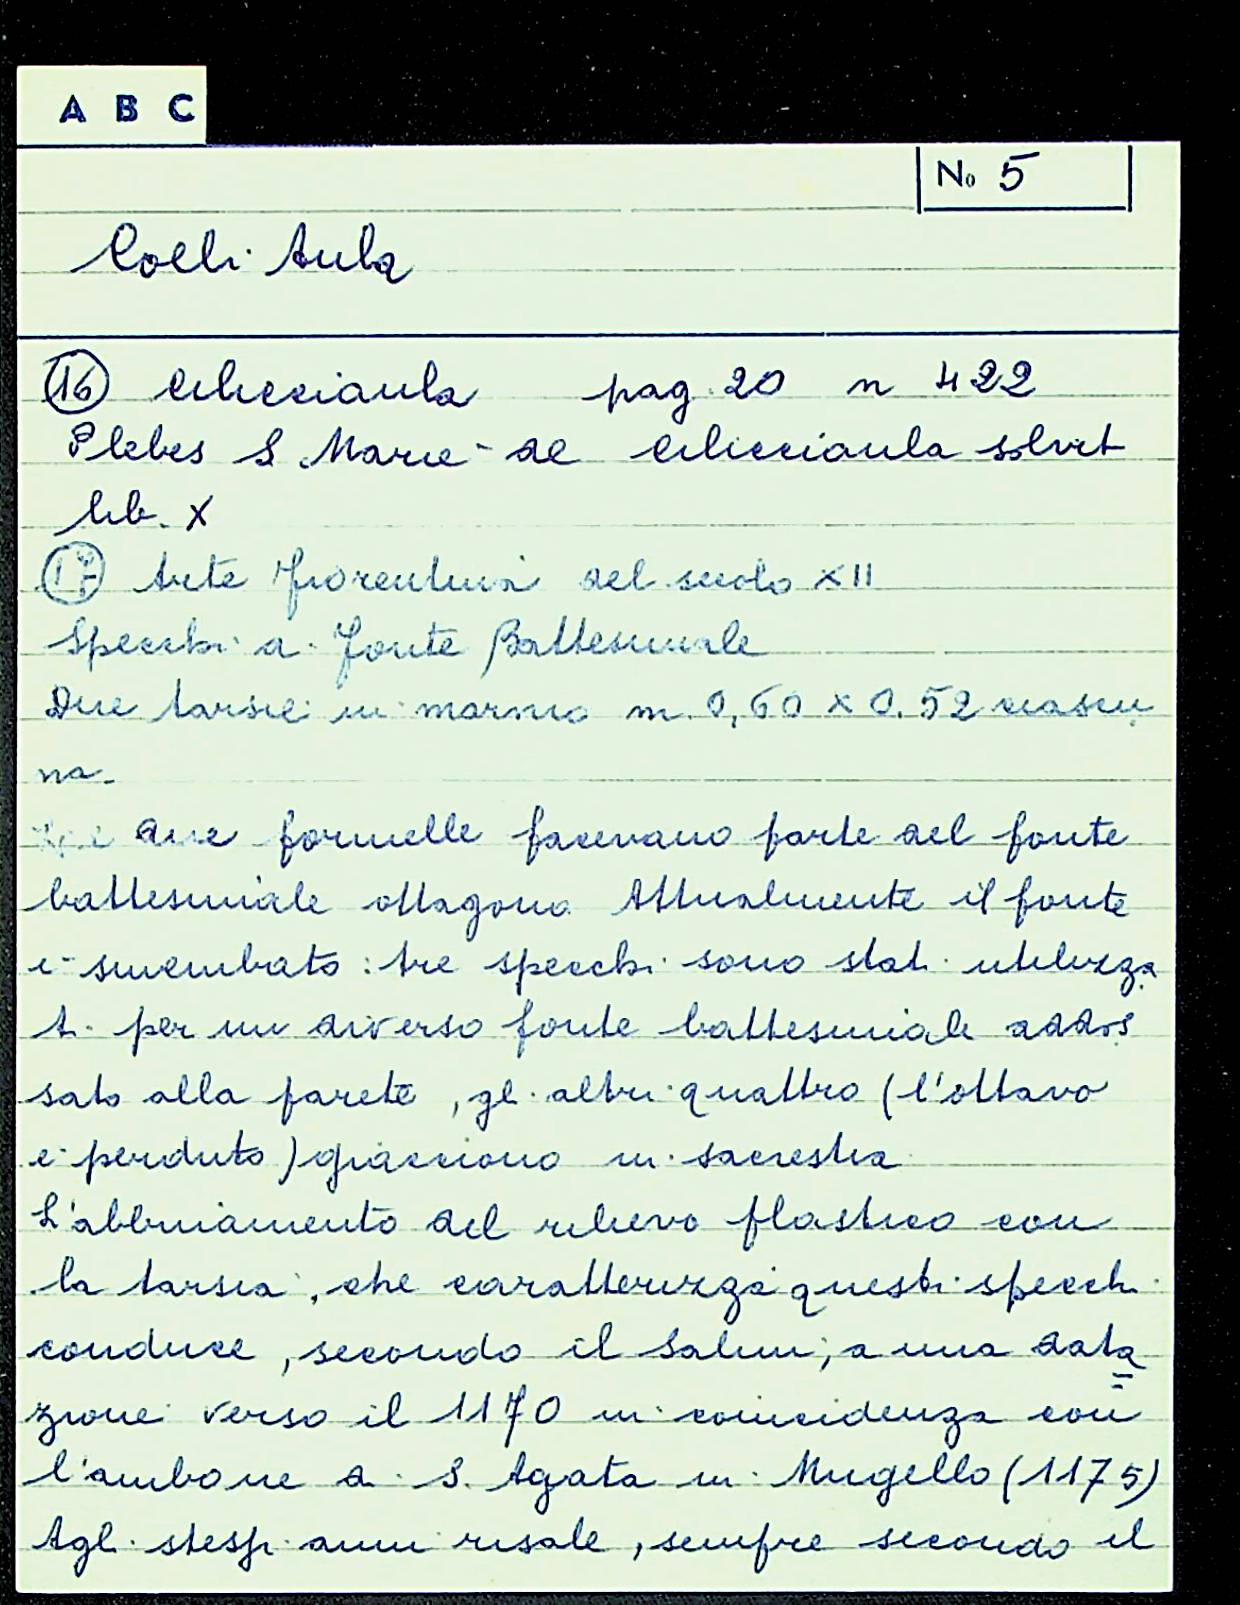 A B C
No 5
Colli Aula
16 Cilicciaula pag. 20 n 422
Plebes S. Marie de Cilicciaula solvit
lib. X
17 Arte fiorentina del secolo XII
Specchi a fonte Battesimale
Due tarsie in marmo m. 0,60 x 0.52 ciascu
na.
due formelle facevano parte del fonte
battesimale ottagono Attualmente il fonte
e smembato: tre specchi sono stati utilizza
ti per un diverso fonte battesimale addos
sato alla parete, gli altri quattro (l'ottavo
e perduto) giacciono in sacrestia
L'abbniamento del rilievo plastico con
la tarsia, che caratterizza questi specchi
conduce, secondo il Salmi, a una data
zione verso il 1170 in coincidenza con
l'ambone a S. Agata in Mugello (1175)
Agli stessi anni risale, sempre secondo il